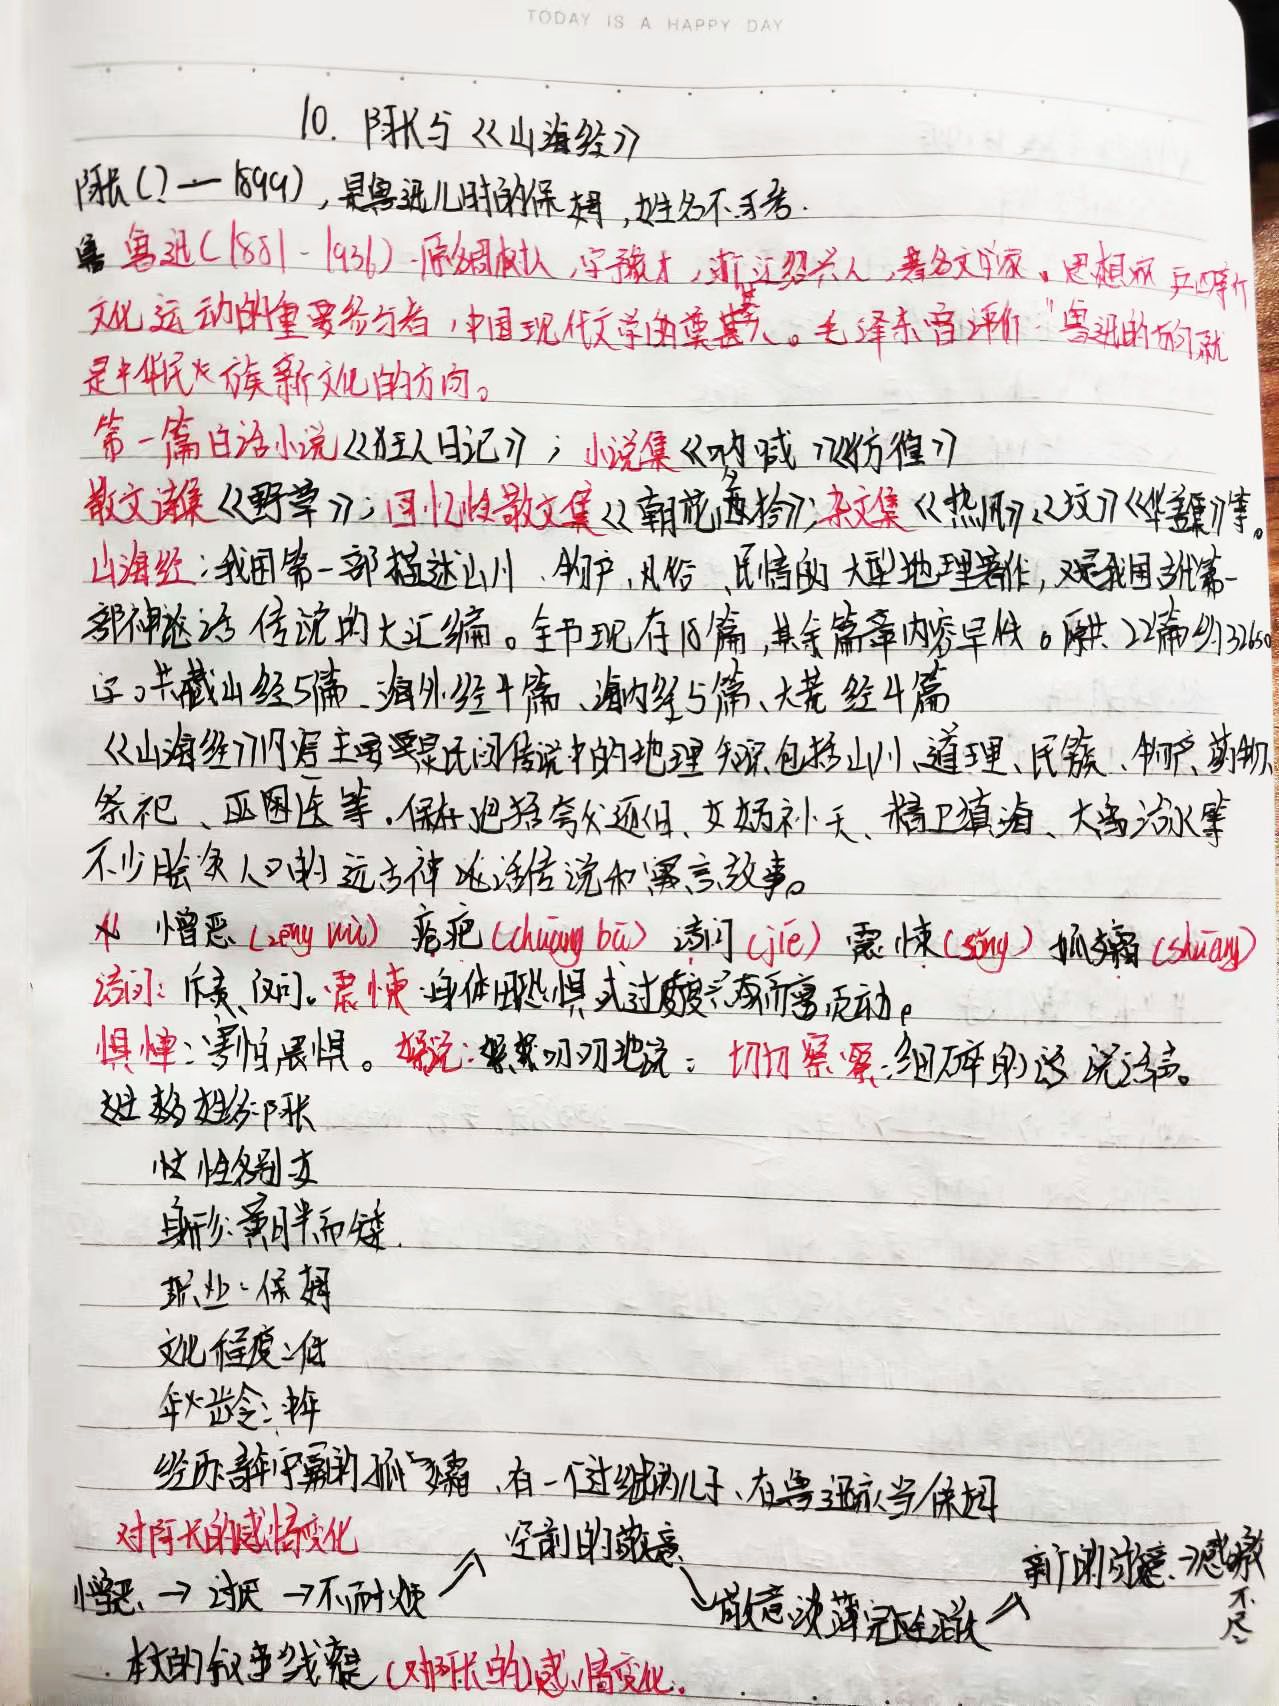 TODAY IS A HAPPY DAY
10. 阿长与《山海经》
阿长(?—1899),是鲁迅儿时的保姆,姓名不可考.
鲁迅(1881-1936).原名周树人,字豫才,浙江绍兴人,著名文学家、思想家
文化运动的重要参与者,中国现代文学的奠基人。毛泽东曾评价"鲁迅的方向就
是中华民族新文化的方向。
第一篇白话小说《狂人日记》;小说集《呐喊》《彷徨》
散文诗集《野草》;回忆性散文集《朝花夕拾》;杂文集《热风》《坟》《华盖集》等。
山海经:我国第一部描述山川、物产、风俗、民情的大型地理著作,又是我国古代第一
部神话传说的大汇编。全书现存18篇,其余篇章内容早佚。原共22篇约32650
字。共藏山经5篇、海外经4篇、海内经5篇、大荒经4篇
《山海经》内容主要是民间传说中的地理知识包括山川、道理、民族、物产、药物、
祭祀、巫医等.保存包括夸父逐日、女娲补天、精卫填海、大禹治水等
不少脍炙人口的远古神话传说和寓言故事。
憎恶(zēng wù) 疮疤(chuāng bā) 诘问(jié) 震悚(sǒng) 孤孀(shuāng)
诘问:斥责、仅问。震悚:身体因恐惧或过度兴奋而颤动。
惧惮:害怕畏惧。絮说:絮絮叨叨地说;切切察察:细碎的说话声。
姓名:阿长
性别:女
身形:黄胖而矮.
职业:保姆
文化程度:低
年龄:中年
经历:青年守寡的孤孀、有一个过继的儿子、在鲁迅家当保姆
对阿长的感情变化
憎恶、→讨厌→不耐烦 ↗ 空前的敬意 ↘ 敬意淡薄完全消失 ↗ 新的敬意→感激不尽
本文的叙事线索是(对阿长的)感情变化.